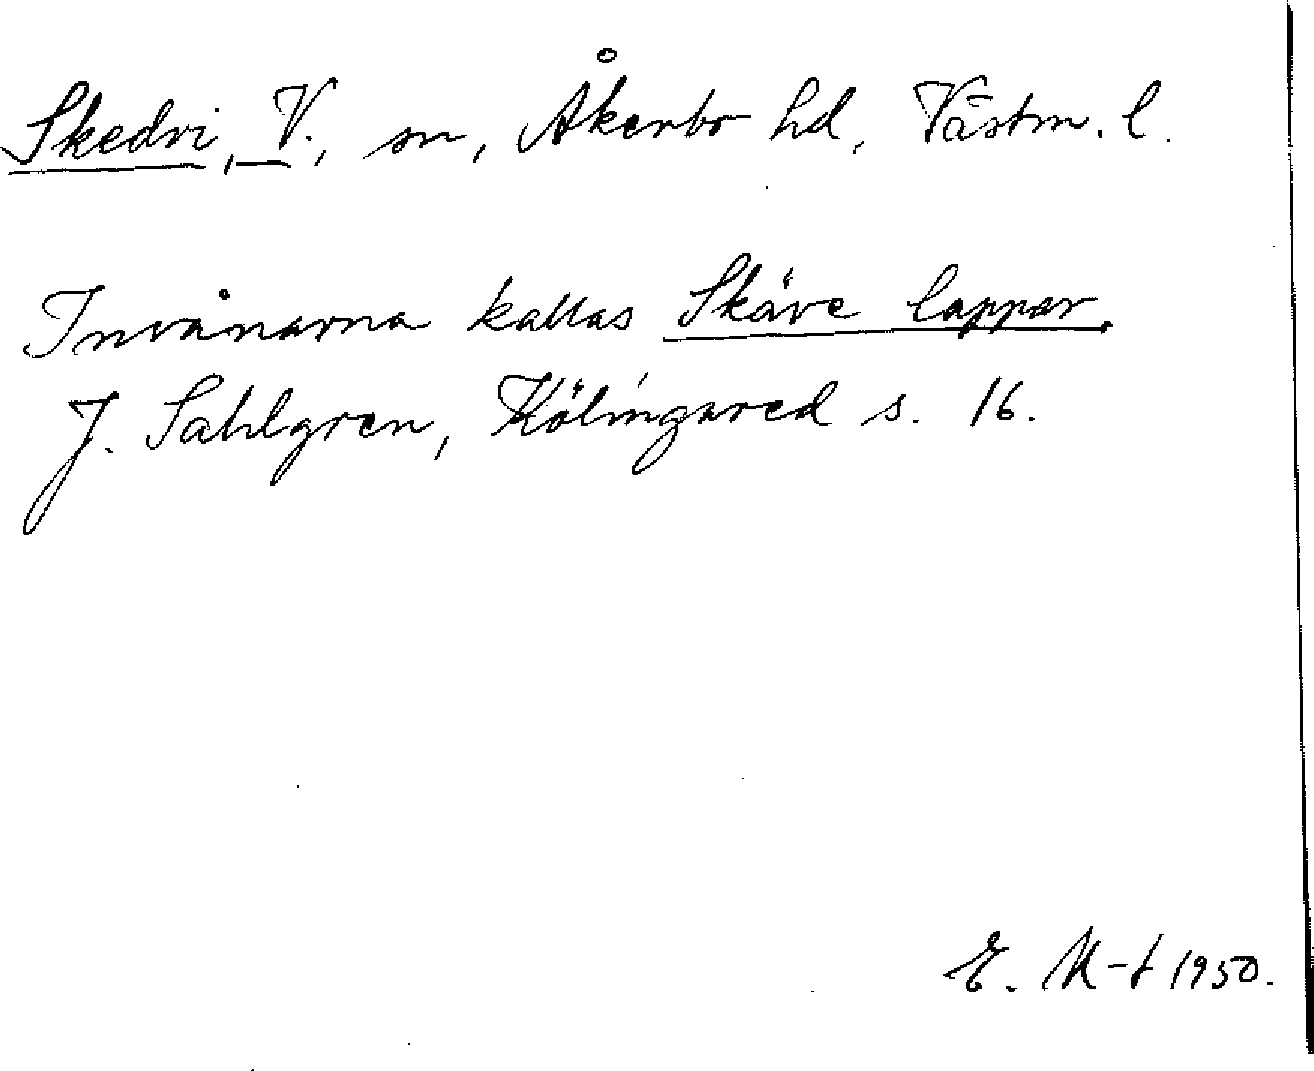 Skedvi, V., sn, Åkerbo hd, Västm. l.
Invånarna kallas Skäve lappar.
J. Sahlgren, Kölingared s. 16.
E. M-t 1950.